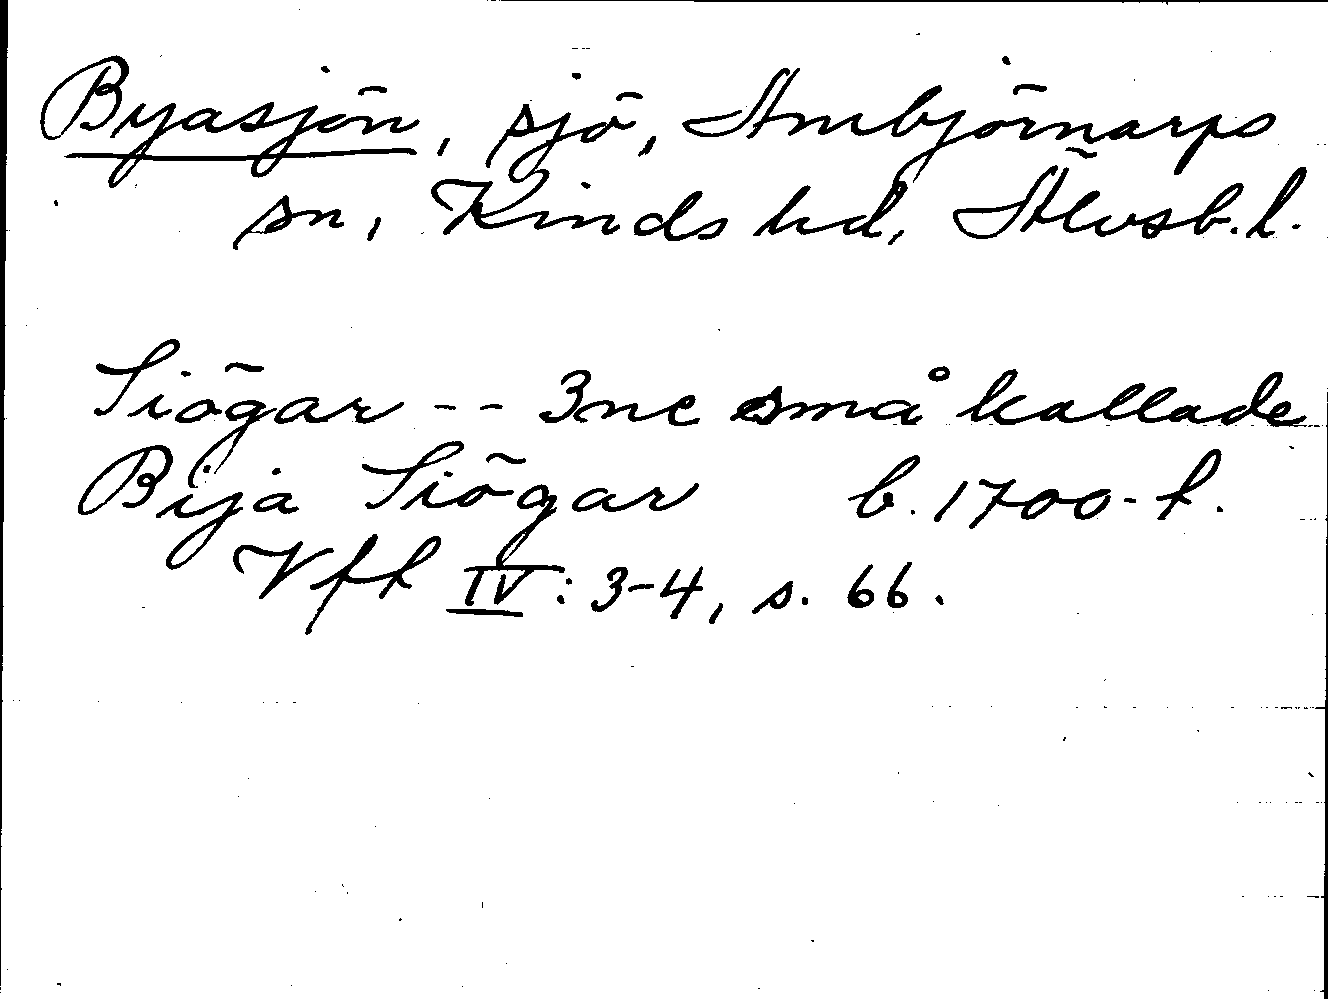 Byasjön, sjö, Ambjörnarps
sn, Kinds hd, Älvsb. l.
Siögar -- 3ne små kallade
Bija Siögar b. 1700-t.
Vft IV: 3-4, s. 66.